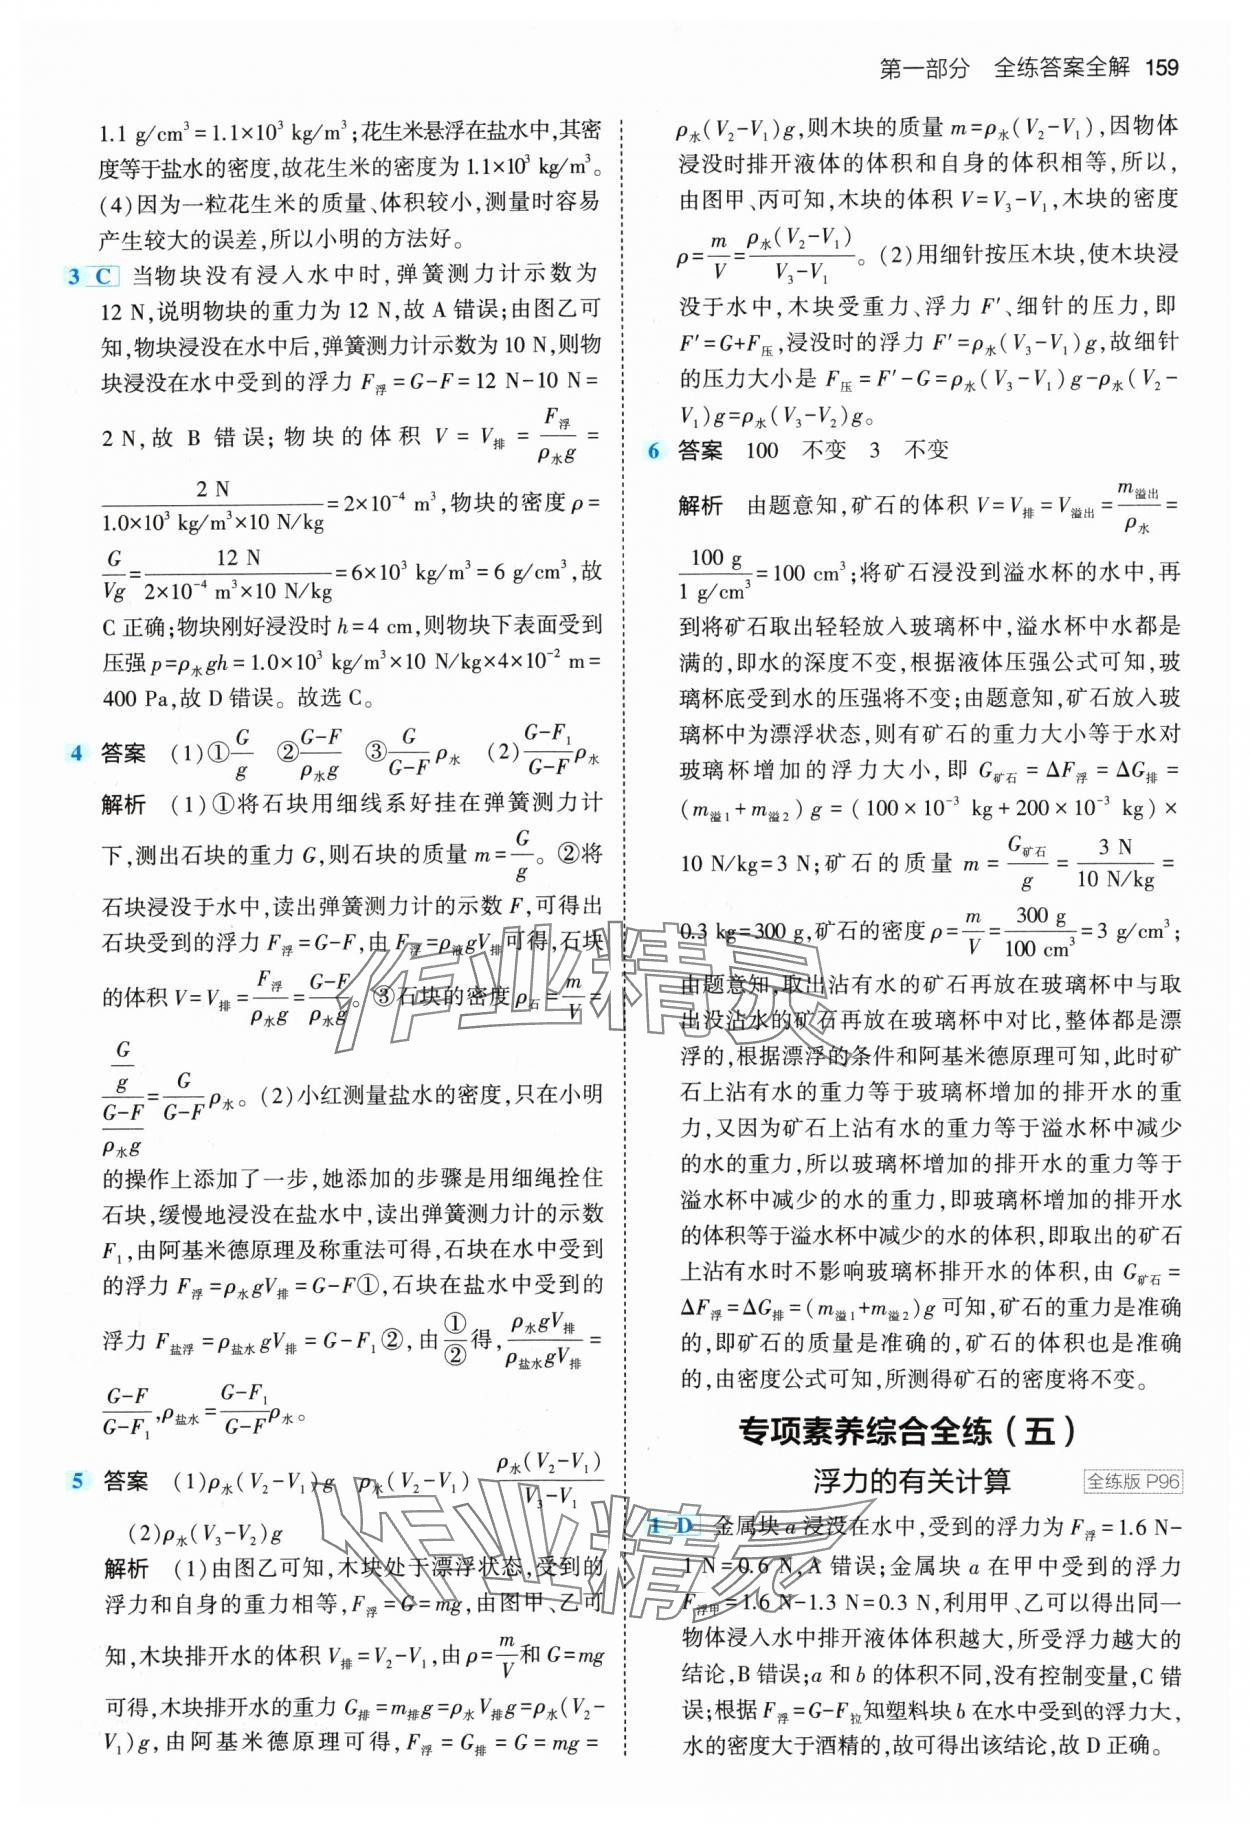 第一部分 全练答案全解 159
1.1 g/cm³=1.1×10³ kg/m³;花生米悬浮在盐水中,其密
度等于盐水的密度,故花生米的密度为1.1×10³ kg/m³。
(4)因为一粒花生米的质量、体积较小,测量时容易
产生较大的误差,所以小明的方法好。
3 C 当物块没有浸入水中时,弹簧测力计示数为
12 N,说明物块的重力为12 N,故A错误;由图乙可
知,物块浸没在水中后,弹簧测力计示数为10 N,则物
块浸没在水中受到的浮力 F浮=G-F=12 N-10 N=
2 N,故 B 错误;物块的体积 V=V排=F浮/(ρ水g)=
2 N/(1.0×10³ kg/m³×10 N/kg)=2×10⁻⁴ m³,物块的密度ρ=
G/(Vg)=12 N/(2×10⁻⁴ m³×10 N/kg)=6×10³ kg/m³=6 g/cm³,故
C正确;物块刚好浸没时h=4 cm,则物块下表面受到
压强p=ρ水gh=1.0×10³ kg/m³×10 N/kg×4×10⁻² m=
400 Pa,故D错误。故选C。
4 答案 (1)①G/g ②(G-F)/(ρ水g) ③G/(G-F)ρ水 (2)(G-F₁)/(G-F)ρ水
解析 (1)①将石块用细线系好挂在弹簧测力计
下,测出石块的重力G,则石块的质量m=G/g。②将
石块浸没于水中,读出弹簧测力计的示数F,可得出
石块受到的浮力F浮=G-F,由F浮=ρ液gV排可得,石块
的体积V=V排=F浮/(ρ水g)=(G-F)/(ρ水g)。③石块的密度ρ石=m/V=
(G/g)/((G-F)/(ρ水g))=G/(G-F)ρ水。(2)小红测量盐水的密度,只在小明
的操作上添加了一步,她添加的步骤是用细绳拴住
石块,缓慢地浸没在盐水中,读出弹簧测力计的示数
F₁,由阿基米德原理及称重法可得,石块在水中受到
的浮力F浮=ρ水gV排=G-F①,石块在盐水中受到的
浮力F盐浮=ρ盐水gV排=G-F₁②,由①/②得,(ρ水gV排)/(ρ盐水gV排)=
(G-F)/(G-F₁),ρ盐水=(G-F₁)/(G-F)ρ水。
5 答案 (1)ρ水(V₂-V₁)g ρ水(V₂-V₁) ρ水(V₂-V₁)/(V₃-V₁)
(2)ρ水(V₃-V₂)g
解析 (1)由图乙可知,木块处于漂浮状态,受到的
浮力和自身的重力相等,F浮=G=mg,由图甲、乙可
知,木块排开水的体积V排=V₂-V₁,由ρ=m/V和G=mg
可得,木块排开水的重力G排=m排g=ρ水V排g=ρ水(V₂-
V₁)g,由阿基米德原理可得,F浮=G排=G=mg=
ρ水(V₂-V₁)g,则木块的质量m=ρ水(V₂-V₁),因物体
浸没时排开液体的体积和自身的体积相等,所以,
由图甲、丙可知,木块的体积V=V₃-V₁,木块的密度
ρ=m/V=ρ水(V₂-V₁)/(V₃-V₁)。(2)用细针按压木块,使木块浸
没于水中,木块受重力、浮力F′、细针的压力,即
F′=G+F压,浸没时的浮力F′=ρ水(V₃-V₁)g,故细针
的压力大小是F压=F′-G=ρ水(V₃-V₁)g-ρ水(V₂-
V₁)g=ρ水(V₃-V₂)g。
6 答案 100 不变 3 不变
解析 由题意知,矿石的体积V=V排=V溢出=m溢出/ρ水=
100 g/(1 g/cm³)=100 cm³;将矿石浸没到溢水杯的水中,再
到将矿石取出轻轻放入玻璃杯中,溢水杯中水都是
满的,即水的深度不变,根据液体压强公式可知,玻
璃杯底受到水的压强将不变;由题意知,矿石放入玻
璃杯中为漂浮状态,则有矿石的重力大小等于水对
玻璃杯增加的浮力大小,即G矿石=ΔF浮=ΔG排=
(m溢1+m溢2)g=(100×10⁻³ kg+200×10⁻³ kg)×
10 N/kg=3 N;矿石的质量m=G矿石/g=3 N/(10 N/kg)=
0.3 kg=300 g,矿石的密度ρ=m/V=300 g/100 cm³=3 g/cm³;
由题意知,取出沾有水的矿石再放在玻璃杯中与取
出没沾水的矿石再放在玻璃杯中对比,整体都是漂
浮的,根据漂浮的条件和阿基米德原理可知,此时矿
石上沾有水的重力等于玻璃杯增加的排开水的重
力,又因为矿石上沾有水的重力等于溢水杯中减少
的水的重力,所以玻璃杯增加的排开水的重力等于
溢水杯中减少的水的重力,即玻璃杯增加的排开水
的体积等于溢水杯中减少的水的体积,即取出的矿石
上沾有水时不影响玻璃杯排开水的体积,由G矿石=
ΔF浮=ΔG排=(m溢1+m溢2)g可知,矿石的重力是准确
的,即矿石的质量是准确的,矿石的体积也是准确
的,由密度公式可知,所测得矿石的密度将不变。
专项素养综合全练(五)
浮力的有关计算 全练版 P96
1 D 金属块a浸没在水中,受到的浮力为F浮=1.6 N-
1 N=0.6 N,A错误;金属块a在甲中受到的浮力
F浮甲=1.6 N-1.3 N=0.3 N,利用甲、乙可以得出同一
物体浸入水中排开液体体积越大,所受浮力越大的
结论,B错误;a和b的体积不同,没有控制变量,C错
误;根据F浮=G-F拉知塑料块b在水中受到的浮力大,
水的密度大于酒精的,故可得出该结论,故D正确。
作业精灵
作业精灵